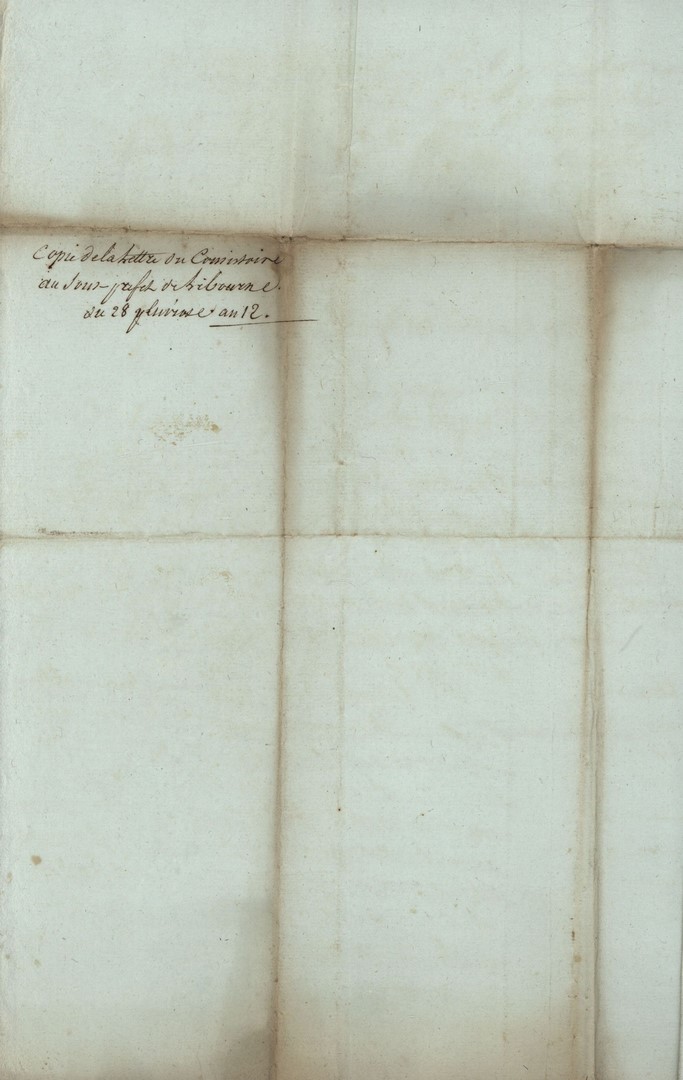 Copie de la Lettre du Consistoire
au Sous-prefet de Libourne.
du 28 pluviose an 12.